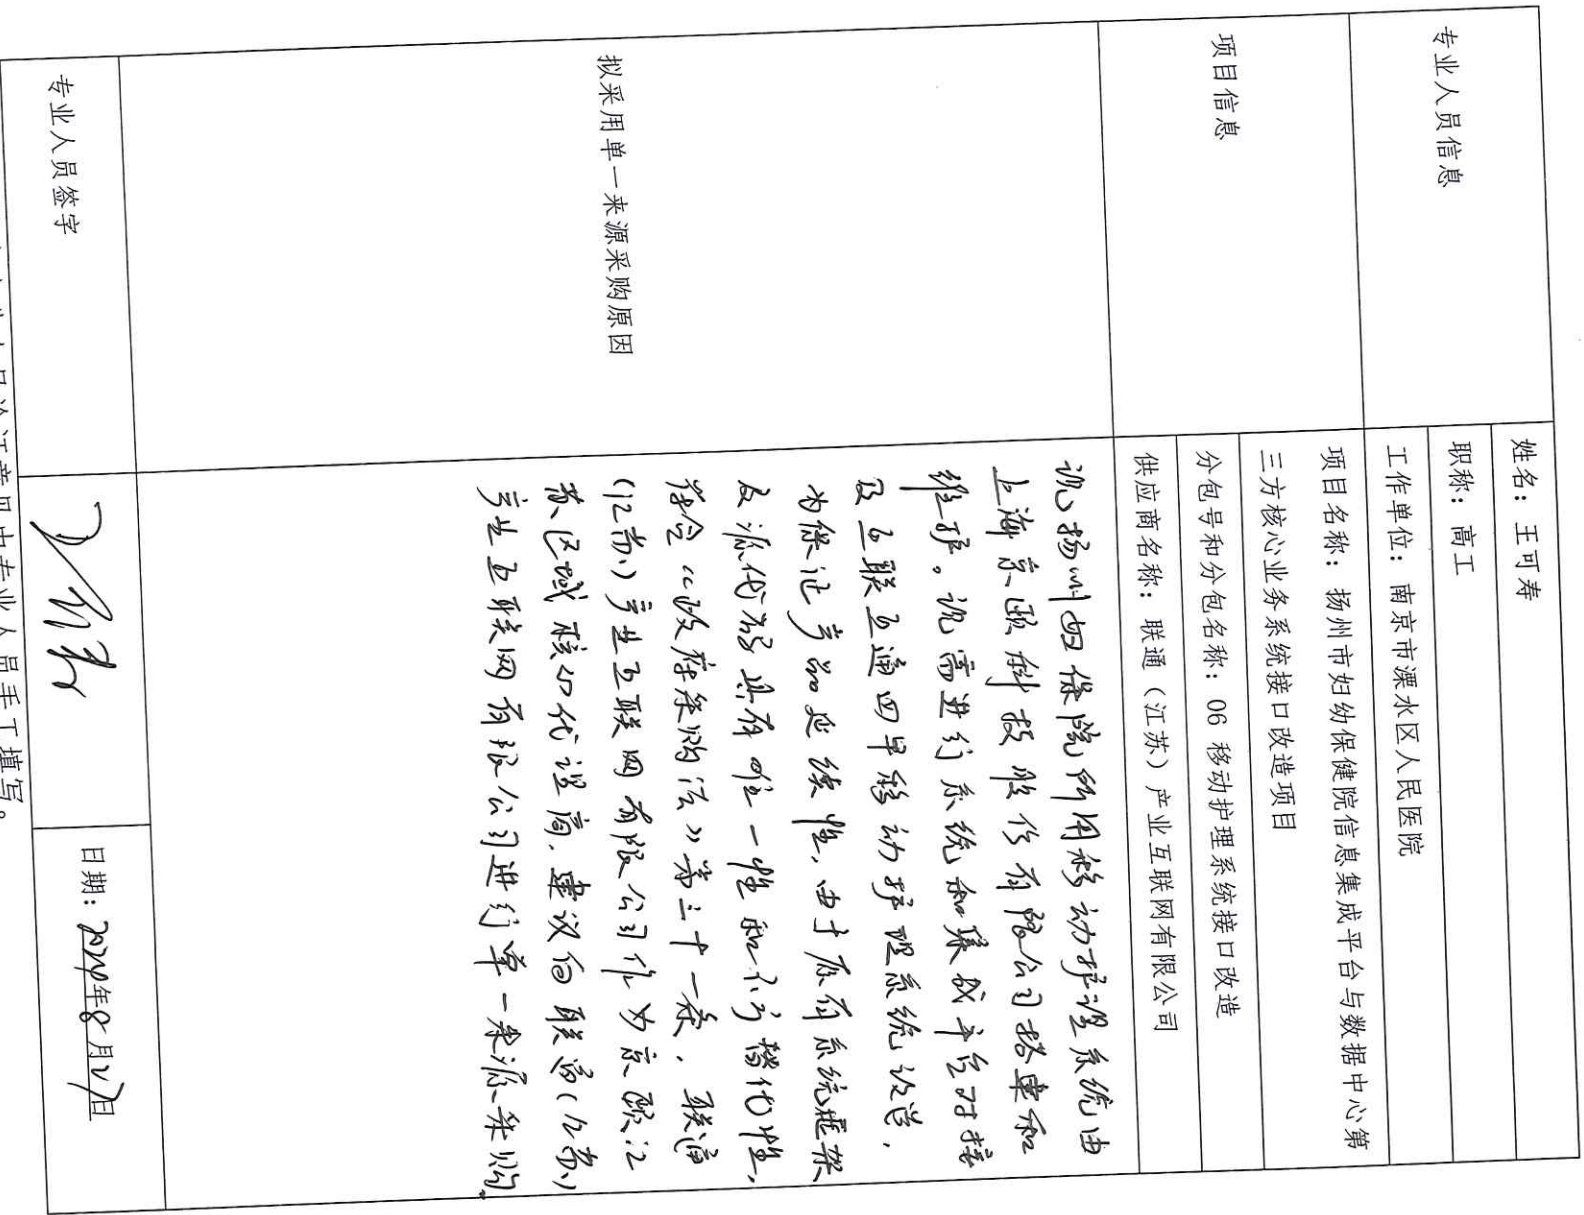 专业人员信息
姓名：王可寿
职称：高工
工作单位：南京市溧水区人民医院
项目信息
项目名称：扬州市妇幼保健院信息集成平台与数据中心第
三方核心业务系统接口改造项目
分包号和分包名称：06 移动护理系统接口改造
供应商名称：联通（江苏）产业互联网有限公司
拟采用单一来源采购原因
现扬州妇保院所用移动护理系统由
上海京颐科技股份有限公司搭建和
维护。现需进行系统和集成平台对接
及互联互通四甲移动护理系统改造，
为保证产品延续性，由于原有系统框架
及源代码具有唯一性和不可替代性，
符合《政府采购法》第三十一条，联通
（江苏）产业互联网有限公司作为京颐江
苏区域核心代理商，建议向联通（江苏）
产业互联网有限公司进行单一来源采购。
专业人员签字
日期：2024年8月27日
专业人员论证意见由专业人员手工填写。